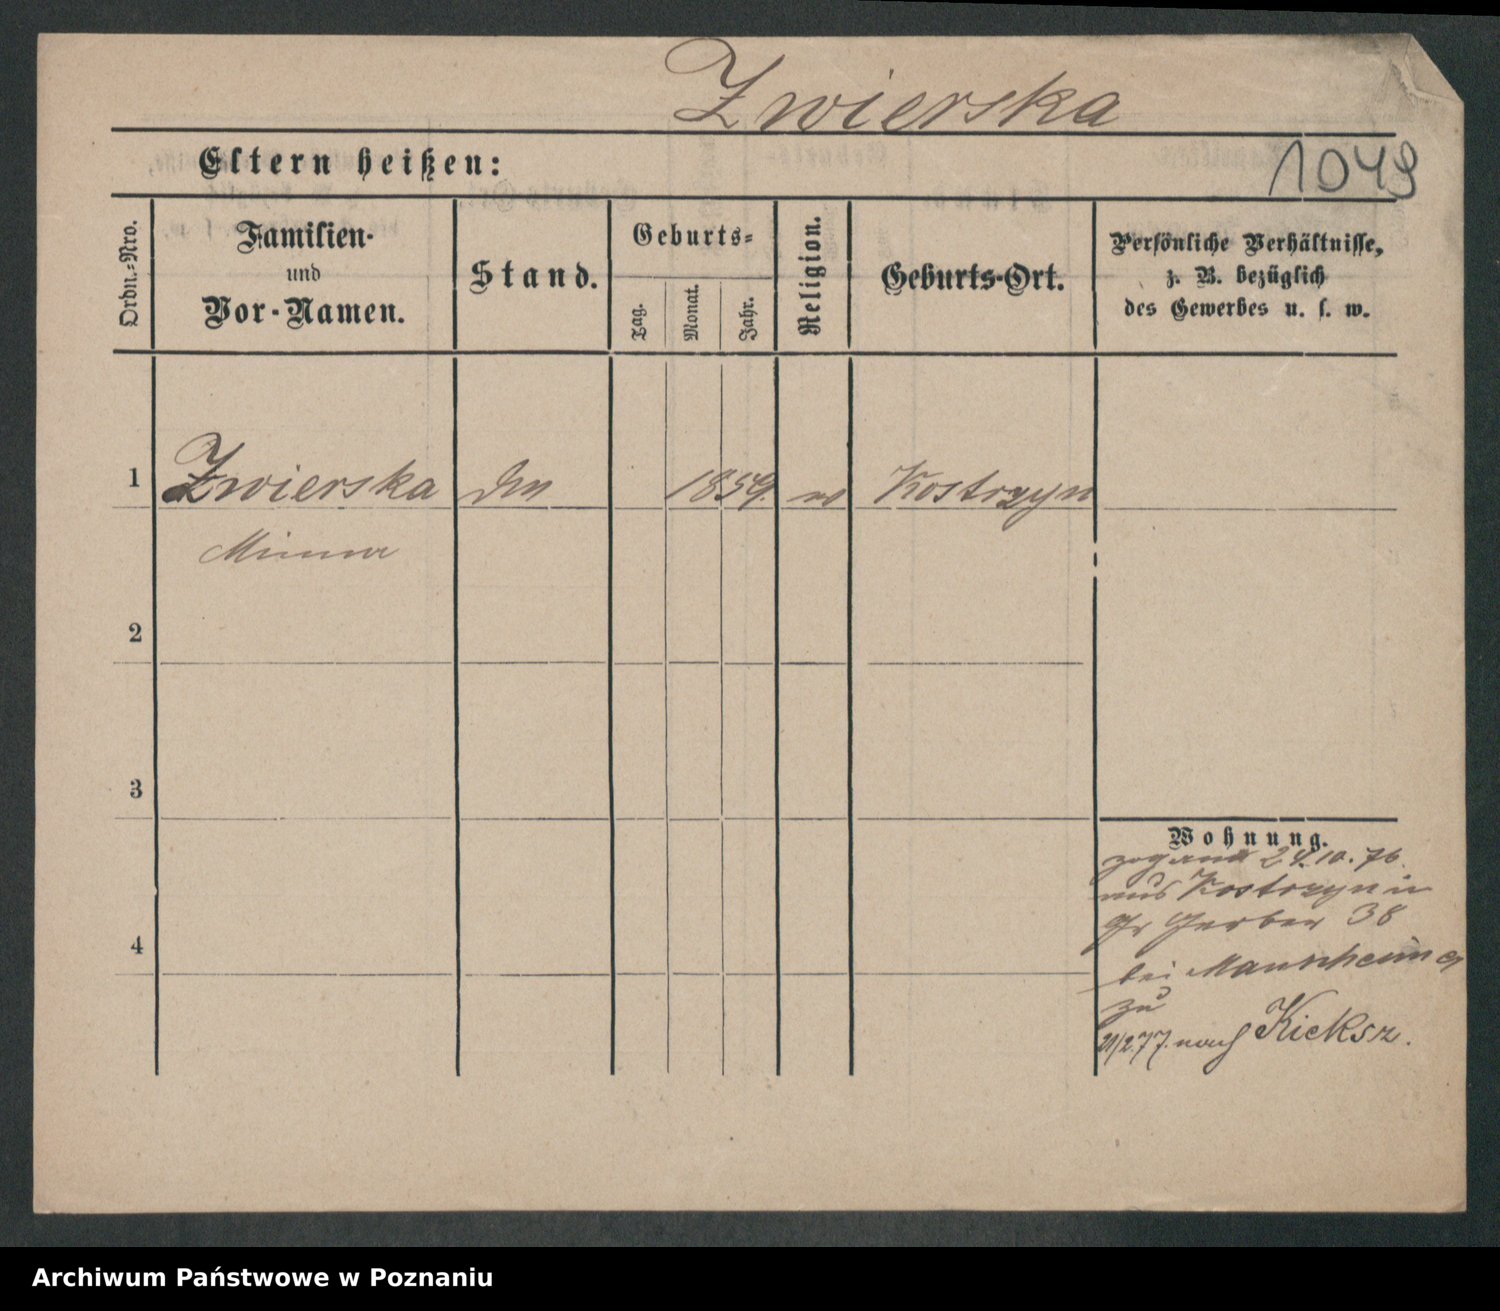 Zwierska
Eltern heißen:
1049
Ordn.=Nro.
Familien-
und
Vor-Namen.
Stand.
Geburts=
Tag.
Monat.
Jahr.
Religion.
Geburts-Ort.
Persönliche Verhältnisse,
z. B. bezüglich
des Gewerbes u. s. w.
1 Zwierska 1859. Kostrzyn
Minna
2
3
4
Wohnung.
24.10.76.
aus Kostrzyn in
Gr Gerber 38
bei Mannheimer
zu
21/2.77. nach Kicksz.
Archiwum Państwowe w Poznaniu